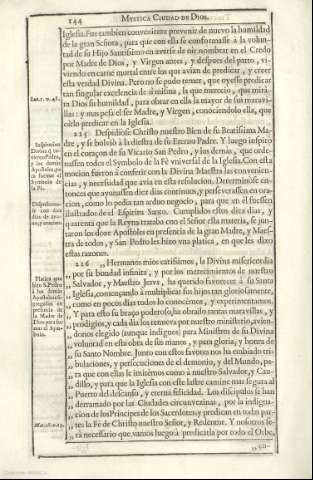 144
MYSTICA CIUDAD DE DIOS.
Iglesia. Fue tambien conveniente prevenir de nuevo la humildad
de la gran Señora, para que con ella se conformasse à la volun-
tad de su Hijo Santissimo en averse de oir nombrar en el Credo
por Madre de Dios, y Virgen antes, y despues del parto, vi-
viendo en carne mortal entre los que avian de predicar, y creer
esta verdad Divina. Pero no se pudo temer, que oyesse predicar
tan singular excelencia de sì misma, la que mereciò, que mirà-
ra Dios su humildad, para obrar en ella la mayor de sus maravi-
llas: y mas pesa el ser Madre, y Virgen, conociendolo ella, que
oìrlo predicar en la Iglesia.
225 Despidiose Christo nuestro Bien de su Beatissima Ma-
dre, y se bolviò à la diestra de su Eterno Padre. Y luego inspirò
en el coraçon de su Vicario San Pedro, y los demàs, que orde-
nassen todos el Symbolo de la Fè vniversal de la Iglesia. Con esta
mocion fueron à conferir con la Divina Maestra las convenien-
cias, y necessidad que avia en esta resolucion. Determinòse en-
tonces que ayunassen diez dias continuos, y perseverassen en ora-
cion, como lo pedia tan arduo negocio, para que en èl fuessen
ilustrados de el Espiritu Santo. Cumplidos estos diez dias, y
quarenta que la Reyna trataba con el Señor esta materia, se jun-
taron los doze Apostoles en presencia de la gran Madre, y Maes-
tra de todos, y San Pedro les hizo vna platica, en que les dixo
estas razones.
226 Hermanos mios carissimos, la Divina misericordia
por su bondad infinita, y por los merecimientos de nuestro
Salvador, y Maestro Jesvs, ha querido favorecer à su Santa
Iglesia, començando à multiplicar sus hijos tan gloriosamente,
como en pocos dias todos lo conocemos, y experimentamos.
Y para esto su braço poderoso, ha obrado tantas maravillas, y
prodigios, y cada dia los renueva por nuestro ministerio, avien-
donos elegido (aunque indignos) para Ministros de su Divina
voluntad en esta obra de sus manos, y para gloria, y honra de
su Santo Nombre. Junto con estos favores nos ha embiado tri-
bulaciones, y persecuciones de el demonio, y del Mundo, pa-
ra que con ellas le imitèmos como à nuestro Salvador, y Cau-
dillo, y para que la Iglesia con este lastre camine mas segura al
Puerto del descanso, y eterna felicidad. Los discipulos se han
derramado por las Ciudades circunvezinas, por la indigna-
cion de los Principes de los Sacerdotes, y predican en todas par-
tes la Fè de Christo nuestro Señor, y Redentor. Y nosotros se-
rà necessario que vamos luego à predicarla por todo el Orbe,